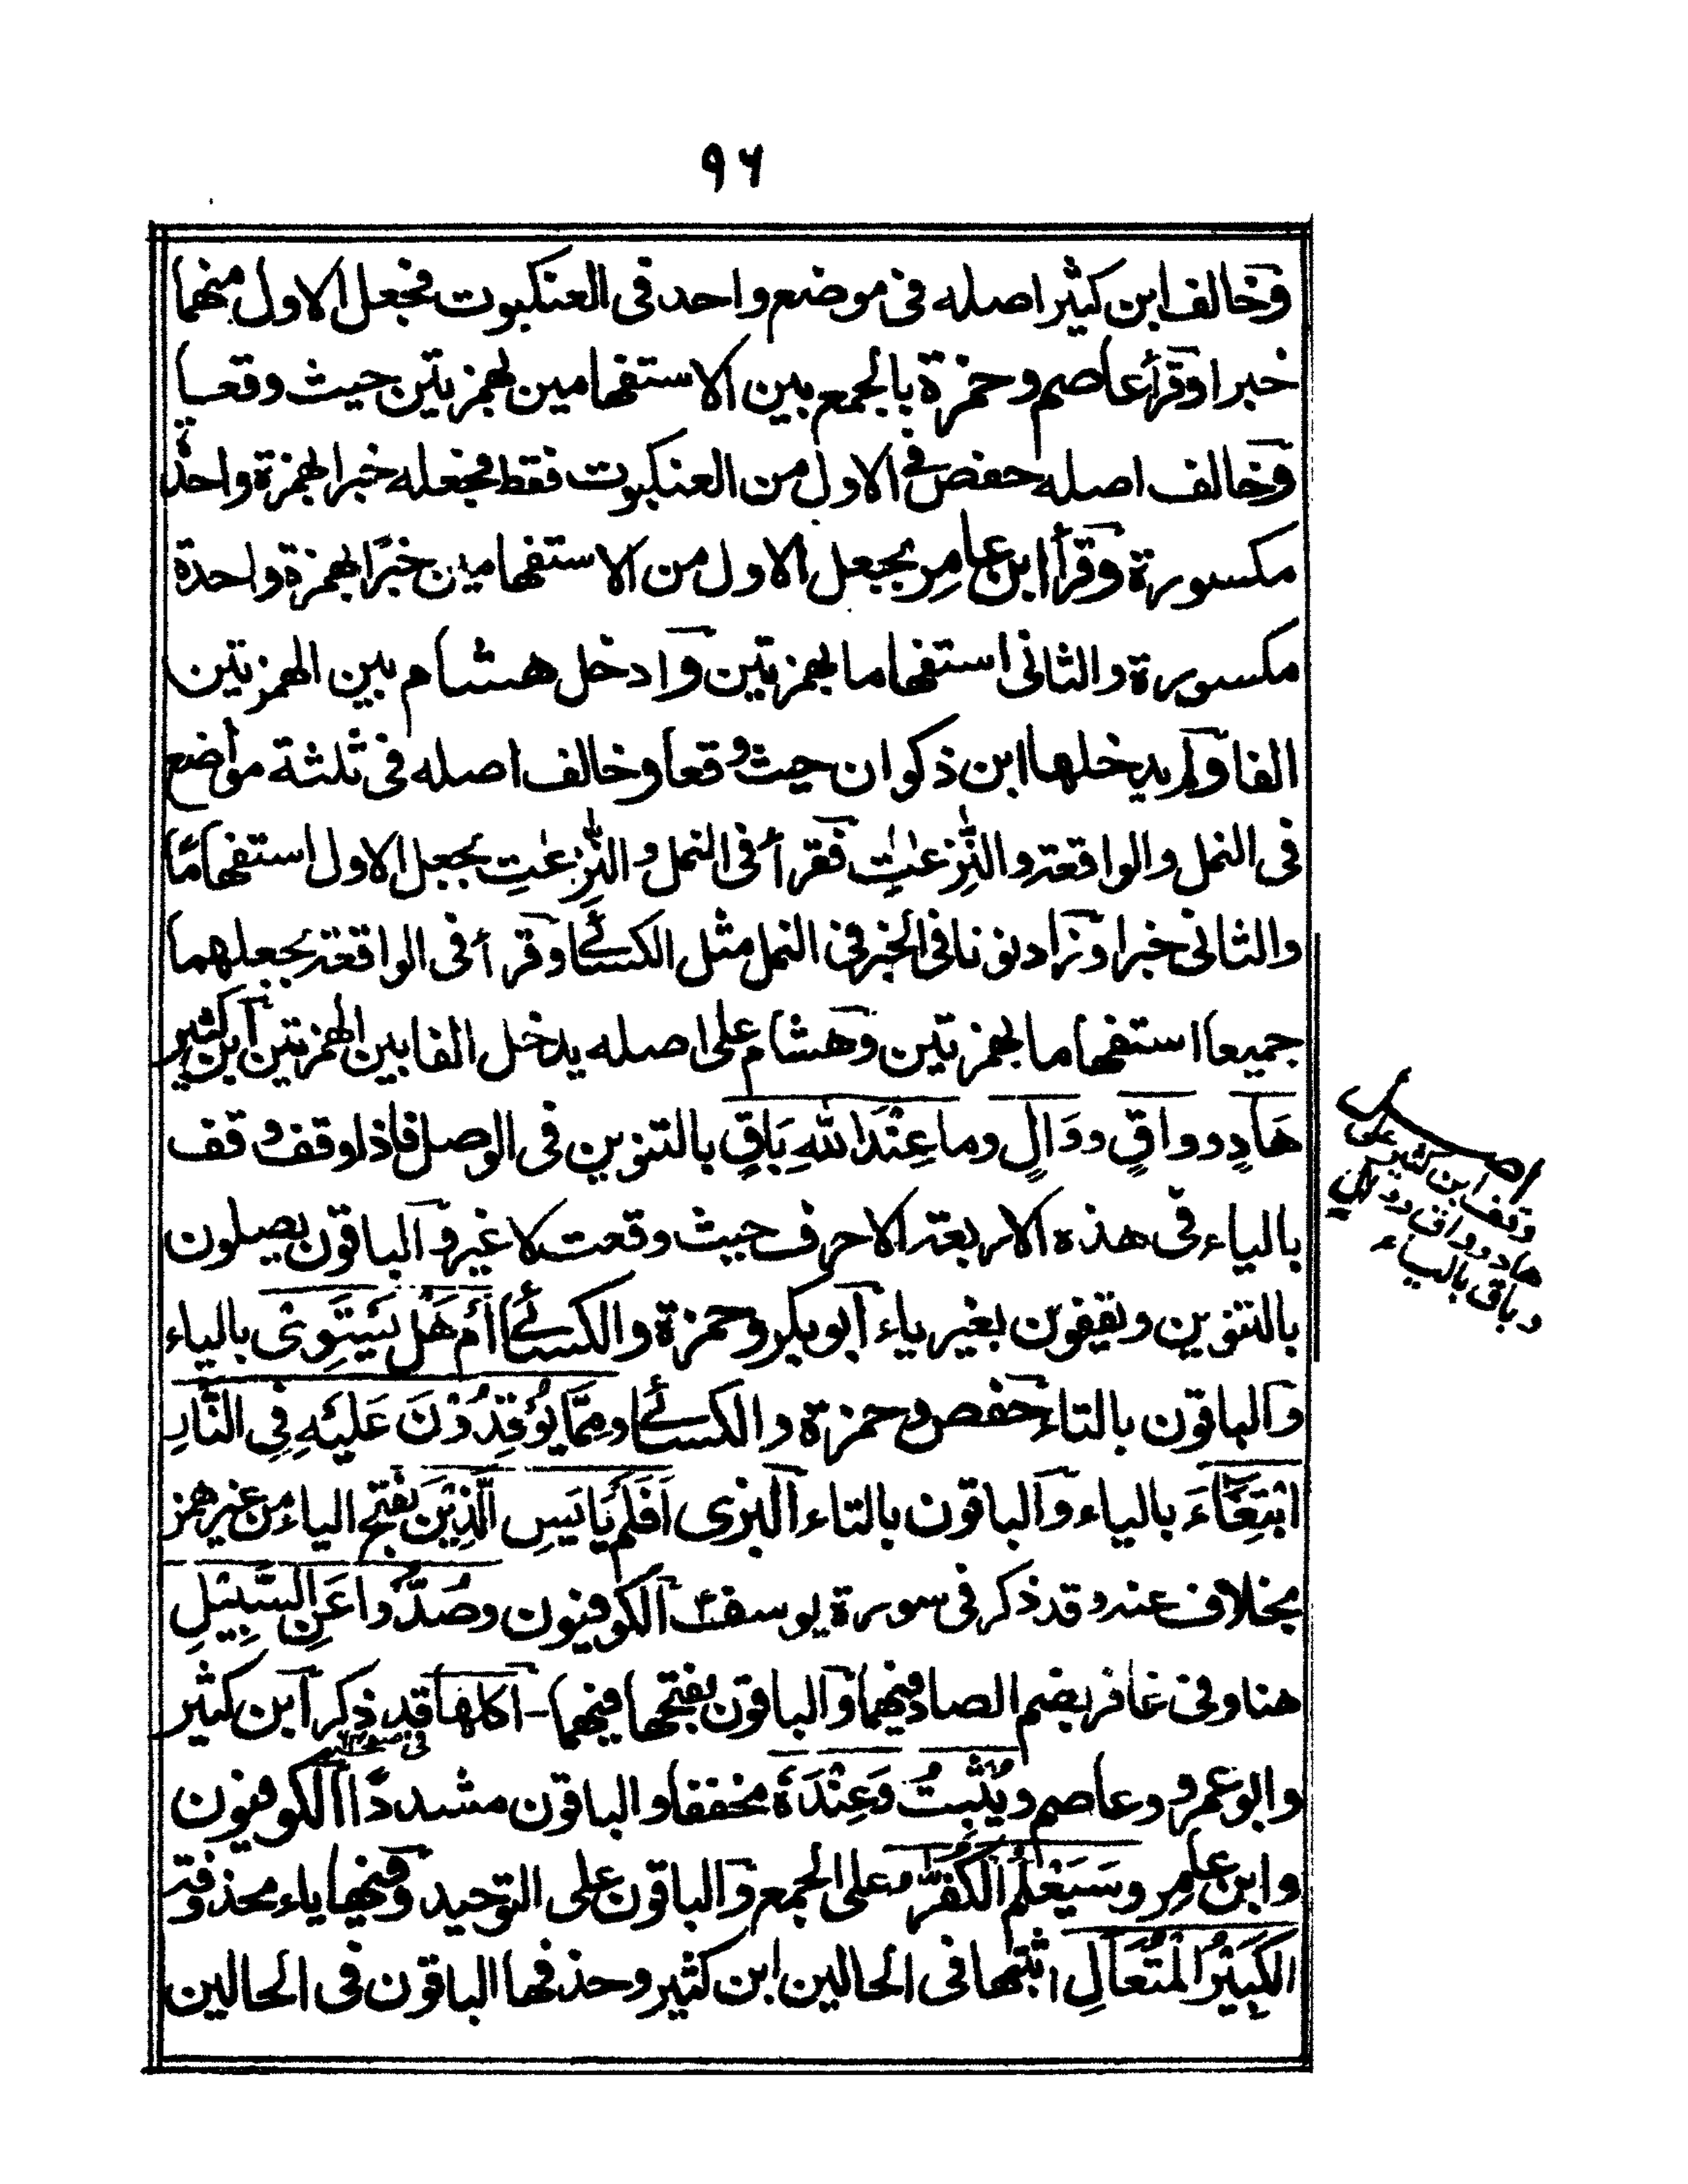 ٩٦
وخالف ابن كثير اصله فى موضع واحد فى العنكبوت فجعل الاول منهما
خبرا وقرأ عاصم وحمزة بالجمع بين الاستفهامين بهمزتين حيث وقعا
وخالف اصله حفص فى الاول من العنكبوت فقط فجعله خبرا بهمزة واحدة
مكسورة وقرأ ابن عامر بجعل الاول من الاستفهامين خبرًا بهمزة واحدة
مكسورة والثانى استفهاما بهمزتين وادخل هشام بين الهمزتين
الفا ولم يدخلها ابن ذكوان حيث وقعا وخالف اصله فى ثلثة مواضع
فى النمل والواقعة والنّٰزِعٰتِ فقرأ فى النمل والنّٰزِعٰتِ بجعل الاول استفهامًا
والثانى خبرا وزاد نونا فى الخبر فى النمل مثل الكسائى وقرأ فى الواقعة بجعلهما
جميعا استفهاما بهمزتين وهشام على اصله يدخل الفا بين الهمزتين ابن كثير
هَادٍ وواقٍ ووَالٍ وما عِنْدَ اللهِ بَاقٍ بالتنوين فى الوصل فاذا وقف وقف
بالياء فى هذه الاربعة الاحرف حيث وقعت لا غير والباقون يصلون
بالتنوين ويقفون بغير ياء ابو بكر وحمزة والكسائى أَمْ هَلْ يَسْتَوِىْ بالياء
والباقون بالتاء حفص وحمزة والكسائى ومِمَّا يُوْقِدُوْنَ عَلَيْهِ فِى النَّارِ
ابْتِغَاءَ بالياء والباقون بالتاء البزى اَفَلَمْ يَايَسِ الَّذِيْنَ بفتح الياء من غير همز
بخلاف عنه وقد ذكر فى سورة يوسفؑ الكوفيون وصُدُّوا عَنِ السَّبِيْلِ
هنا وفى غافر بضم الصاد فيهما والباقون بفتحها فيهما - اكلها قد ذكر ابن كثير
وابو عمرو وعاصم ويُثْبِتُ وَعِنْدَهٗ مخففا والباقون مشددًا الكوفيون
وابن عامر وسَيَعْلَمُ الْكُفّٰرُ على الجمع والباقون على التوحيد وفيها ياء محذوفة
الكَبِيْرُ الْمُتَعَالِ اثبتها فى الحالين ابن كثير وحذفها الباقون فى الحالين
اصل
وقف ابن كثير على
هاد وواق ووال
وباق بالياء